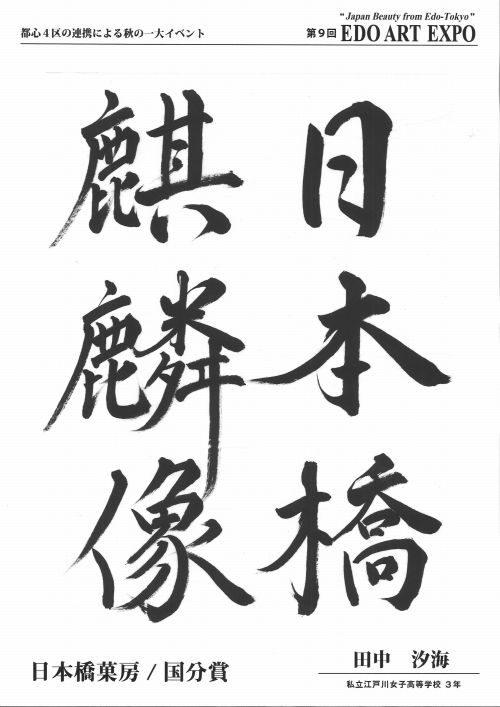 都心4区の連携による秋の一大イベント
"Japan Beauty from Edo-Tokyo"
第9回 EDO ART EXPO
日本橋
麒麟像
日本橋菓房 / 国分賞
田中 汐海
私立江戸川女子高等学校 3年